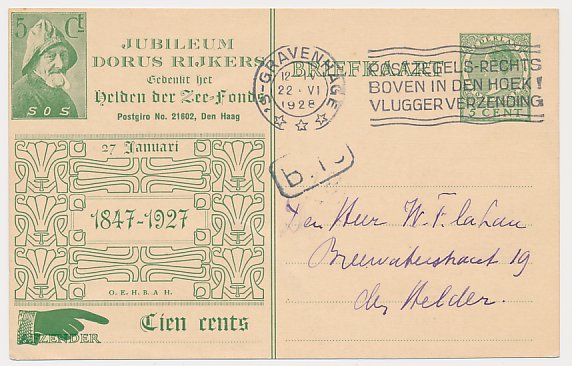 5 Ct
SOS
JUBILEUM
DORUS RIJKERS
Gedenkt het
Helden der Zee-Fonds
Postgiro No. 21602, Den Haag
27 Januari
1847-1927
O. E. H. B. A. H.
Tien cents
AFZENDER
BRIEFKAART
'S-GRAVENHAGE
12
22 · VI
1928
POSTZEGELS-RECHTS
BOVEN IN DEN HOEK!
VLUGGER VERZENDING
NEDERLAND
5 CENT
Den Heer W. F.
19
den Helder.